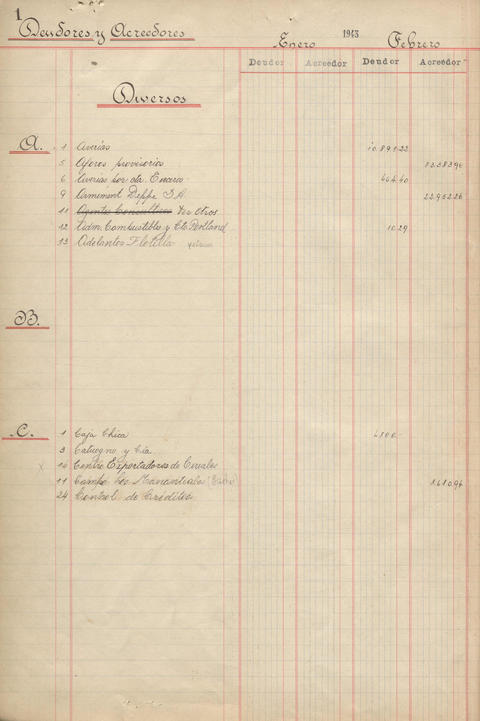 1
Deudores y Acreedores
Enero 1943 Febrero
Deudor Acreedor Deudor Acreedor
Diversos
A. 1 Averías 10.891.22
5 Aforos provisorios
6 Averías por cta. 464.40
9 Armement Deppe S.A. 22.952.26
11 Ver otros
12 Adm. Combustibles y Portland 10.29
13 Adelantos Flotilla
B.
C. 1 Caja Chica
3 Catuogno y Cía
10 Centro Exportadores de Cereales
11 Campo Los Manantiales 1.610.96
24 Control de Créditos